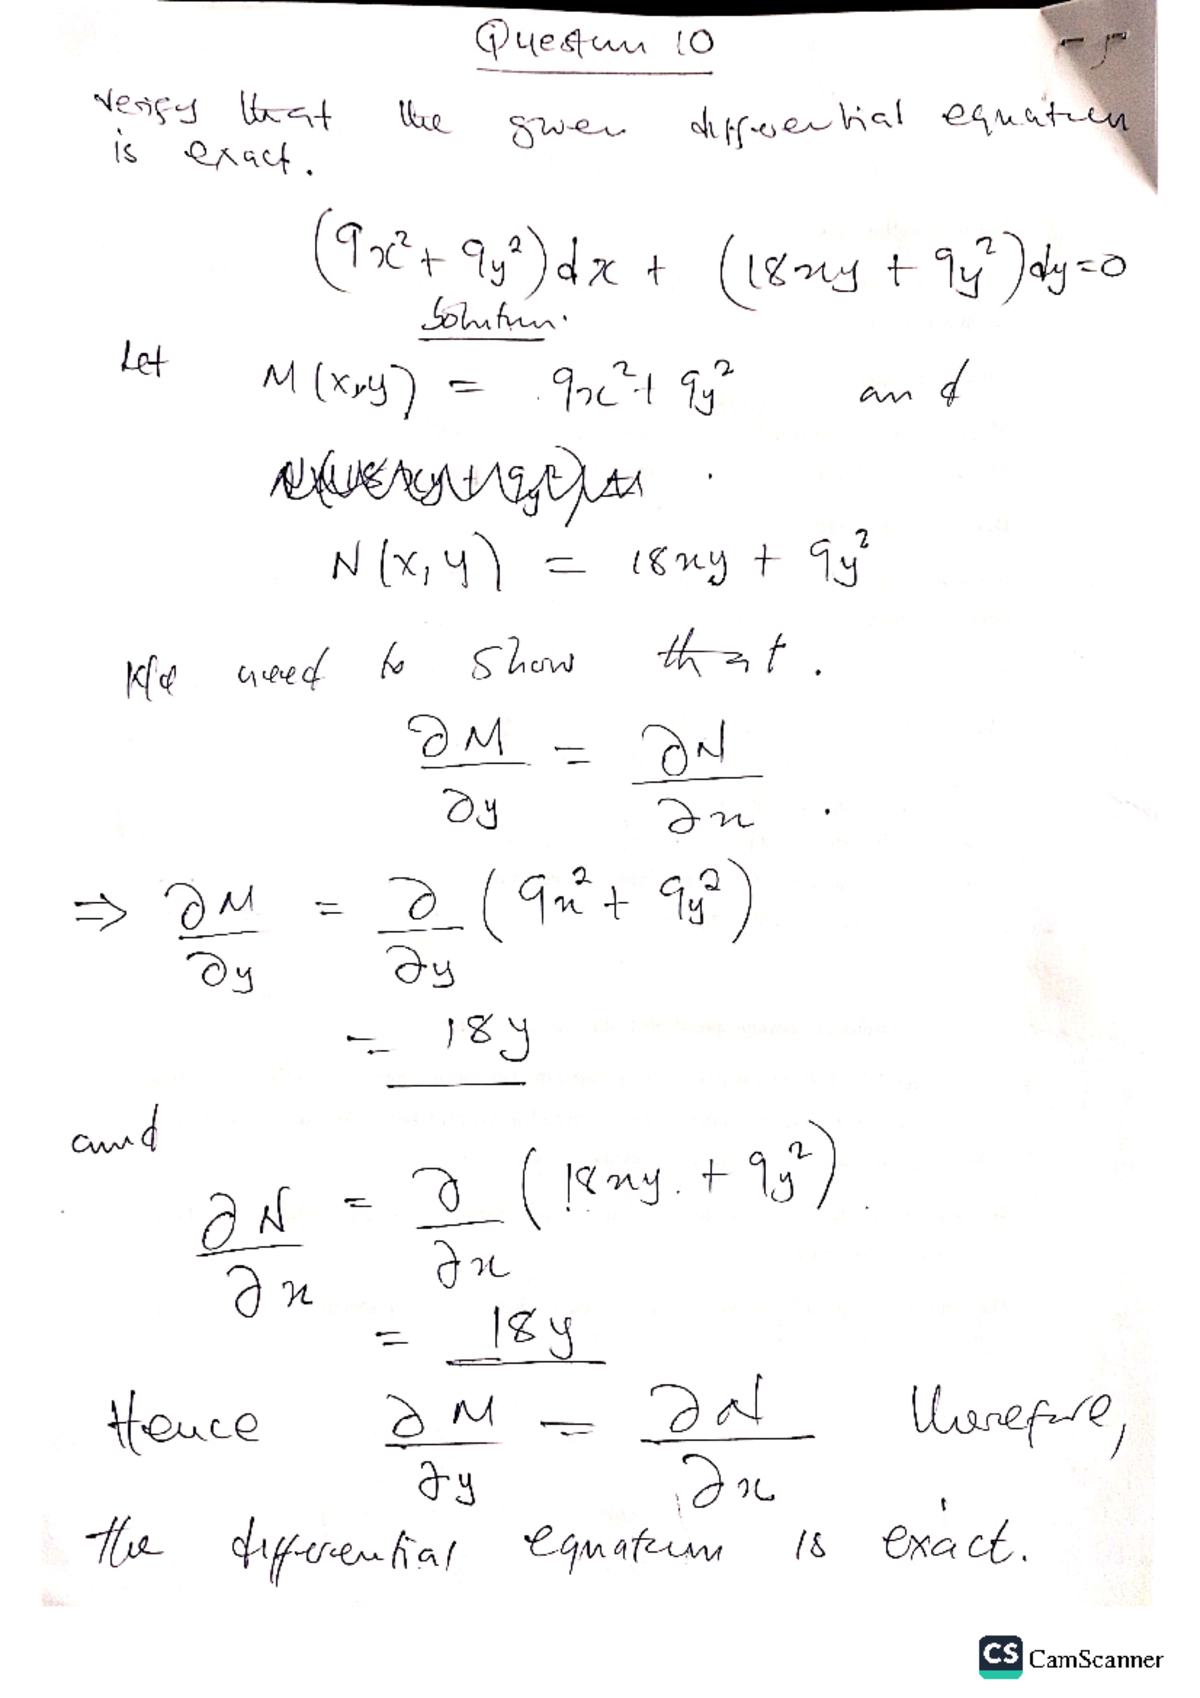 Question 10
Verify that the given differential equation
is exact.
(9x² + 9y²)dx + (18xy + 9y²)dy=0
Solution.
Let M(x,y) = 9x² + 9y² and
N(x, y) = 18xy + 9y²
We need to show that.
∂M/∂y = ∂N/∂x.
⇒ ∂M/∂y = ∂/∂y (9x² + 9y²)
= 18y
and
∂N/∂x = ∂/∂x (18xy. + 9y²)
= 18y
Hence ∂M/∂y = ∂N/∂x therefore,
the differential equation is exact.
CS CamScanner